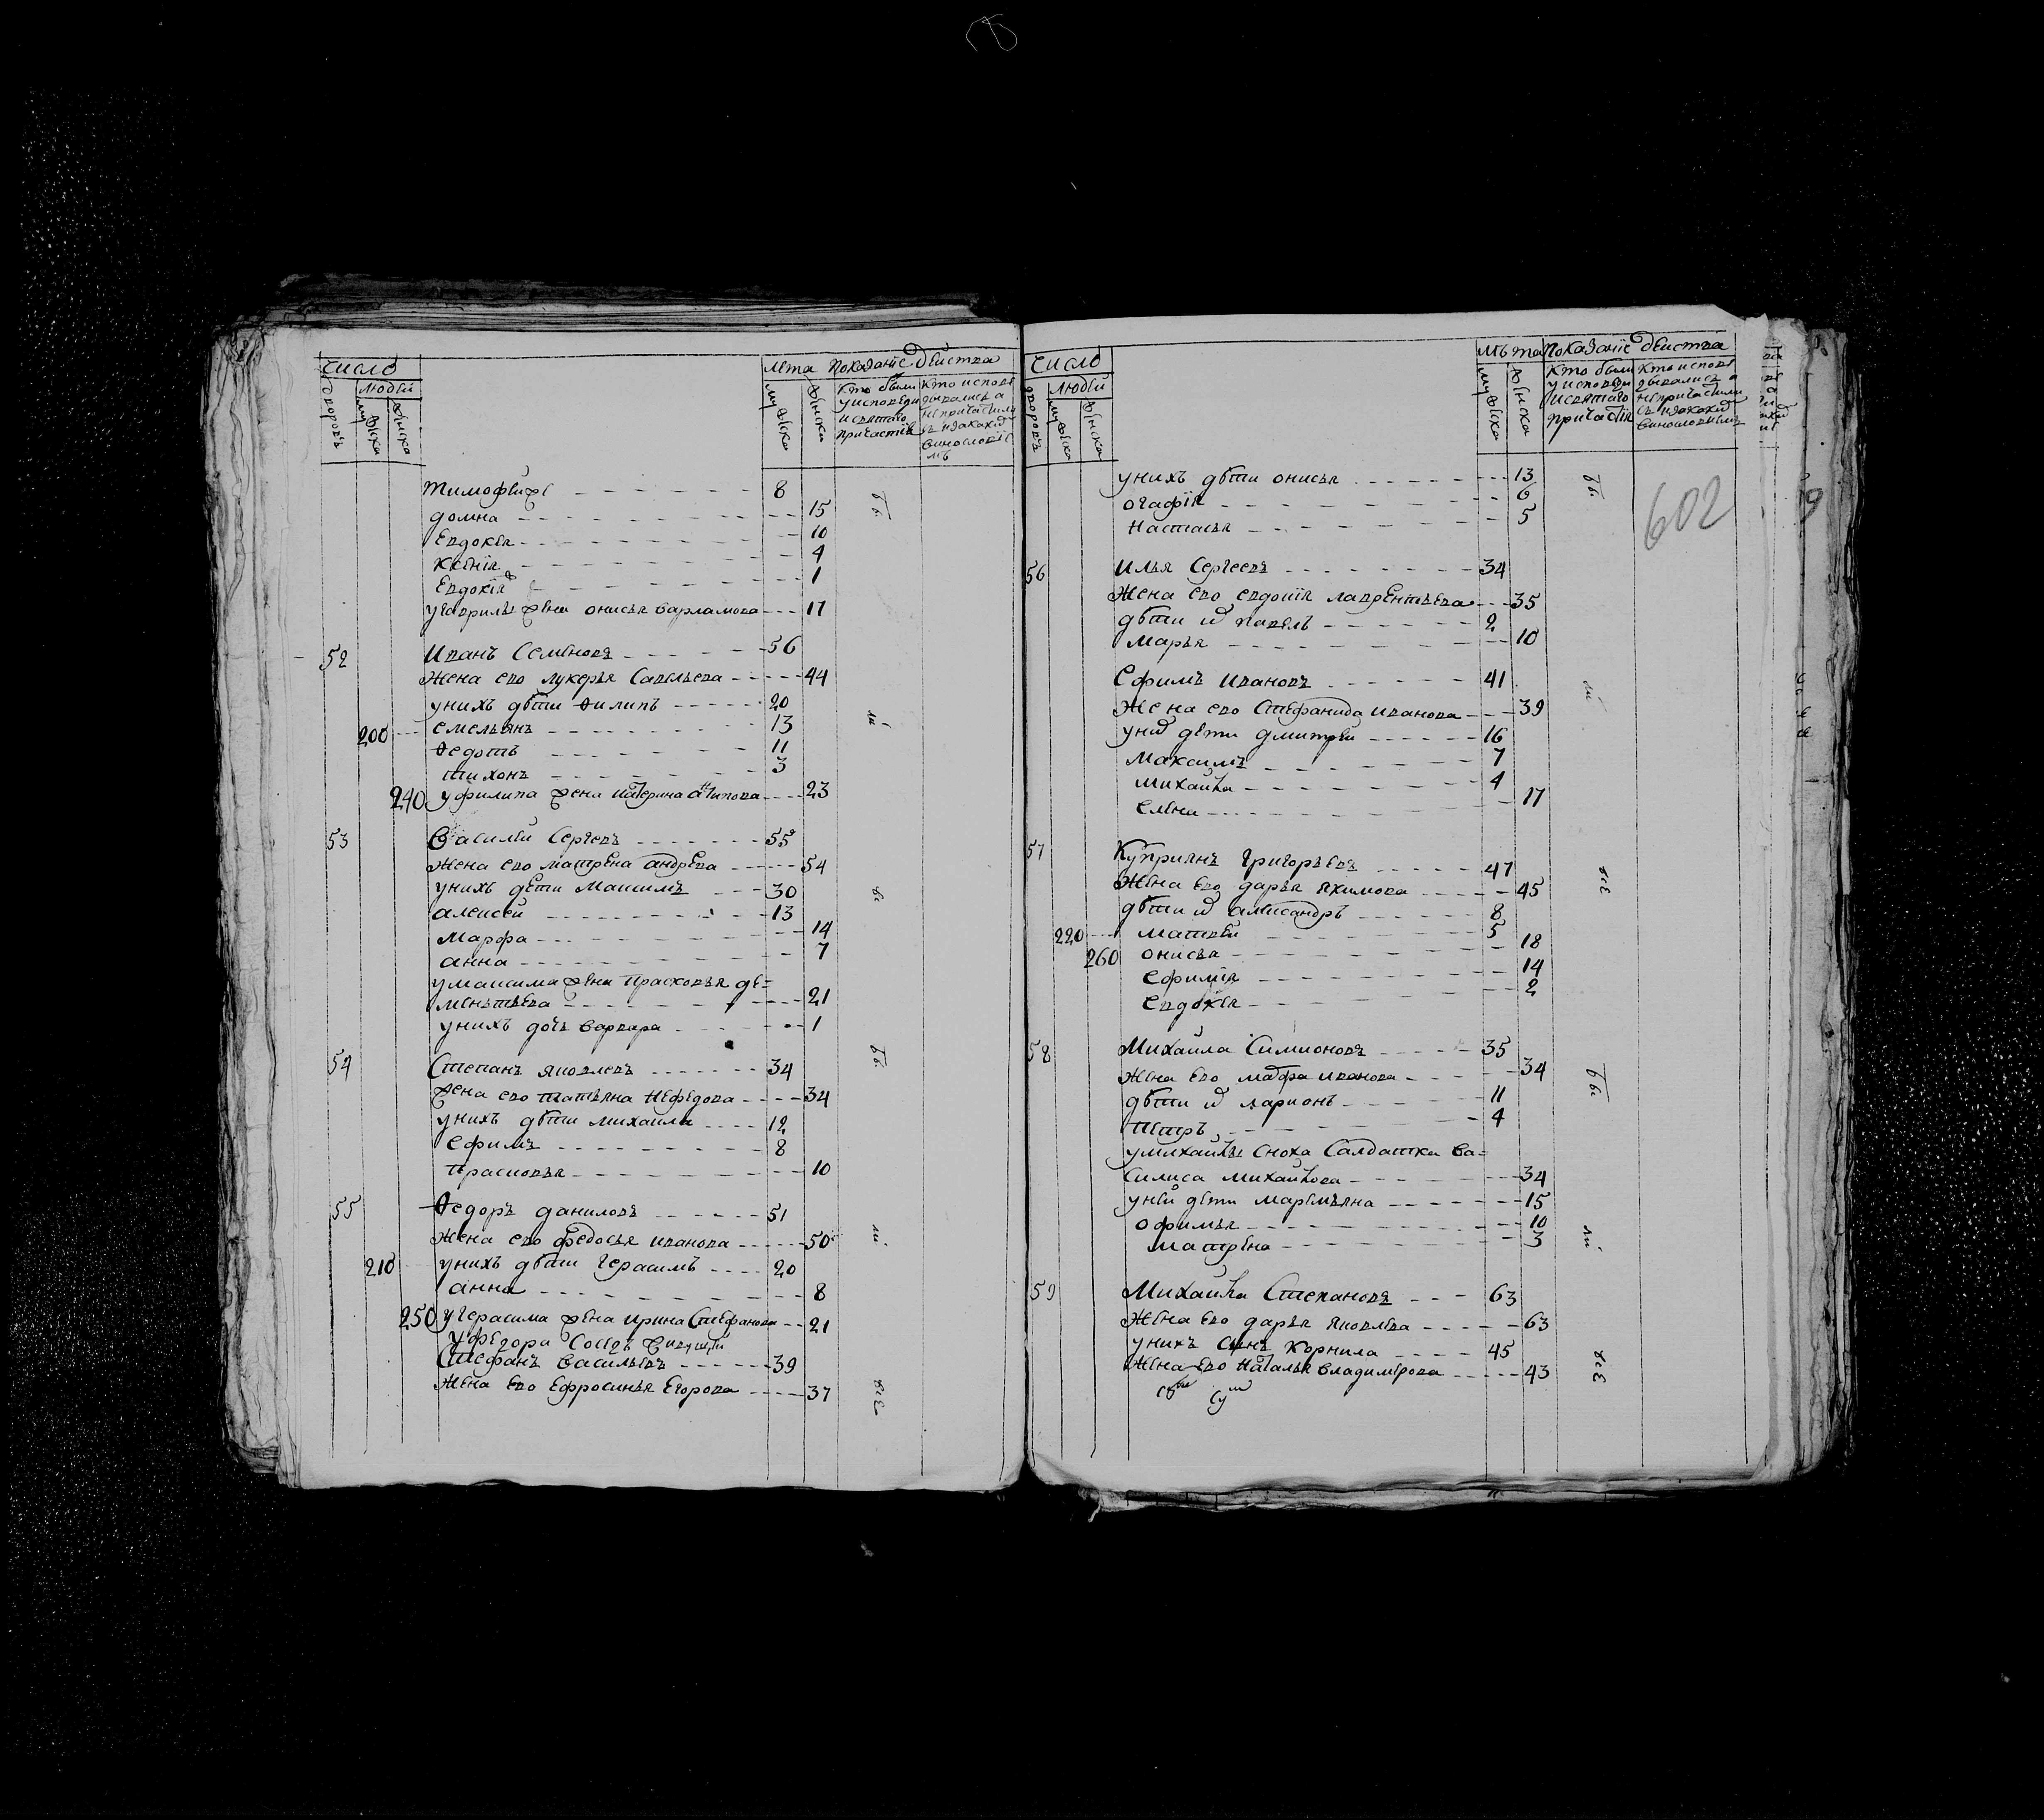 число
дворовъ
людей
мужска
женска
лета
мужска
женска
Показанїе действа
Кто были у исповеди и святаго причастїя
Кто исповедывались а не причастились и за какимъ винословїемъ
Тимофей 8
домна 15
Евдокея 10
Ксенїя 4
Евдокїя 1
у Гаврилы жена онисья варламова 17
52 Иванъ Семеновъ 56
Жена ево лукерья Савельева 44
у нихъ дѣти Ѳилипъ 20
200 емельянъ 13
Ѳедотъ 11
тихонъ 3
240 у филипа жена катерина 23
53 Василей Сергевъ 55
Жена ево матрена андрева 54
у нихъ дети Максимъ 30
алексей 13
Марфа 14
анна 7
у максима жена Прасковья де=
ментьева 21
у нихъ дочь варвара 1
54 Степанъ яковлевъ 34
жена ево татьяна нефедова 34
у нихъ дѣти михаила 12
Ефимъ 8
Прасковья 10
55 Ѳедоръ даниловъ 51
Жена ево федосья иванова 50
210 у нихъ дѣти Герасимъ 20
анна 8
250 у герасима жена ирина Стефанова 21
у федора
Стефанъ васильевъ 39
Жена ево Ефросинья Егорова 37
число
дворовъ
людей
мужска
женска
лѣта
мужска
женска
Показанїе действа
Кто были у исповеди и святаго причастїя
Кто исповедывались а не причастились и за какимъ винословиемъ
602
у нихъ дѣти онисья 13
огафїя 6
Настасья 5
56 Илья Сергеевъ 34
Жена ево евдокїя лаврентьева 35
дѣти их павелъ 2
Марья 10
Ефимъ Ивановъ 41
Жена ево Стефанида иванова 39
у них дети дмитрей 16
Максимъ 7
михайла 4
елена 17
57 Куприянъ григорьевъ 47
Жена ево дарья якимова 45
дѣти их александръ 8
220 матвей 5
260 онисья 18
ефимїя 14
Евдокея 2
58 Михаила Симионовъ 35
Жена ево марфа иванова 34
дѣти их ларионъ 11
Петръ 4
у михайлы сноха Салдатка ва=
силиса михайлова 34
у ней дети маремьяна 15
офимья 10
матрена 3
59 Михайла Степановъ 63
Жена ево дарья яковлева 63
у нихъ сынъ Корнила 45
Жена ево Наталья владимерова 43